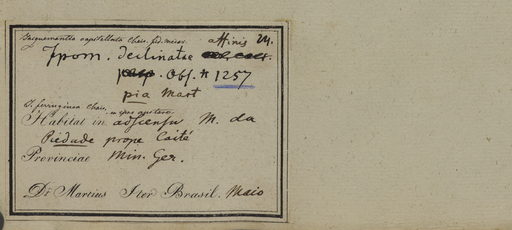 Jacquemontia capitellata Chois. fid. meiss. affinis M.
Ipom. declinatae
Obs. n 1257
pia Mart
J. ferruginea Chois.
Habitat in adscensu M. da
Piedade prope Caité
Provinciae Min. Ger.
Dr Martius Iter Brasil. Maio